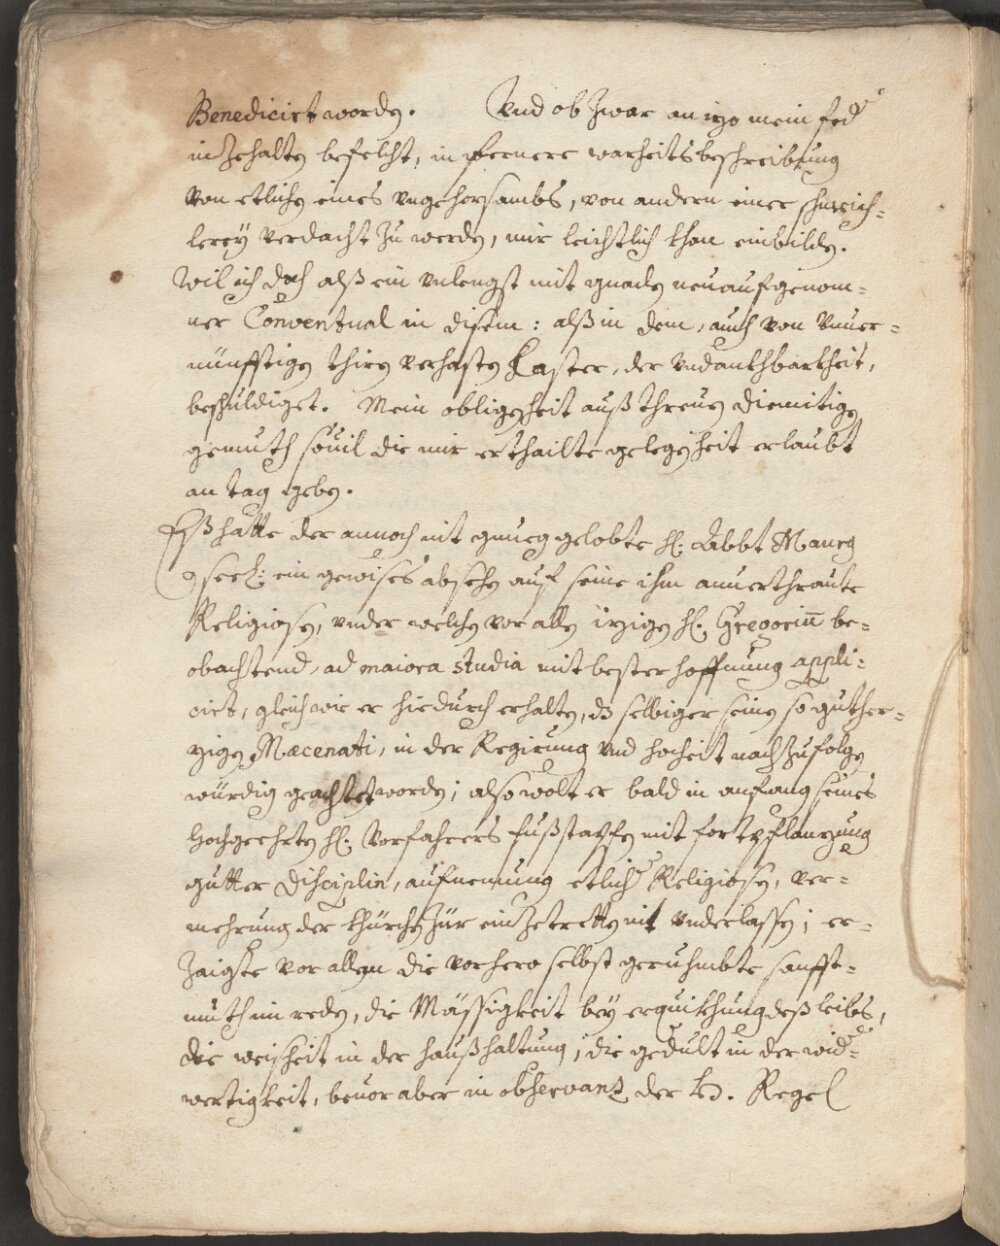 Benedicirt worden. Vnd ob zwar an izo mein fed
inzehalten befelcht, in fernere warheits beschreibung
von etlichen eines vngehorsambs, von andern einer schmeich-
lerey verdacht zu werden, mir leichtlich khan einbilden.
Wil ich doch alß ein vnlengst mit gnaden neu aufgenom-
ner Conventual in disem: alß in dem, auch von vnuer-
nünfftigen thiren verhasten Laster, der vndankhbarkheit,
beschuldiget. Mein obligenheit auß threuen diemitigen
gemuth souil die mir erthailte gelegenheit erlaubt
an tag geben.
Eß hatte der annoch nit gnueg gelobte H. Abbt Maurg
seel: ein gewises absehen auf seine ihm anuerthraute
Religiosen, vnder welchen vor allen izigen H. Gregoriu be-
obachtend, ad maiora studia mit bester hoffnung appli-
cirt, gleich wie er hiedurch erhalten, dz selbiger seinen so guther-
zigen Mæcenati, in der Regirung vnd hocheit nachzufolgen
würdig geachtet worden; also wolt er bald in anfang seines
hochgeehrten H. Vorfahrers fußstapfen mit fortpflanzung
gutter disciplin, aufnemung etlicher Religiosen, ver-
mehrung der khürchen Zür einzetretten nit vnderlassen; er-
zaigte vor allem die vorhero selbst geruhmbte sanfft-
muth im reden, die Mässigkeit bey erquikhung deß leibs,
die weisheit in der haußhaltung, die gedult in der wid-
wertigkeit, beuor aber in obseruanz der H. Regel